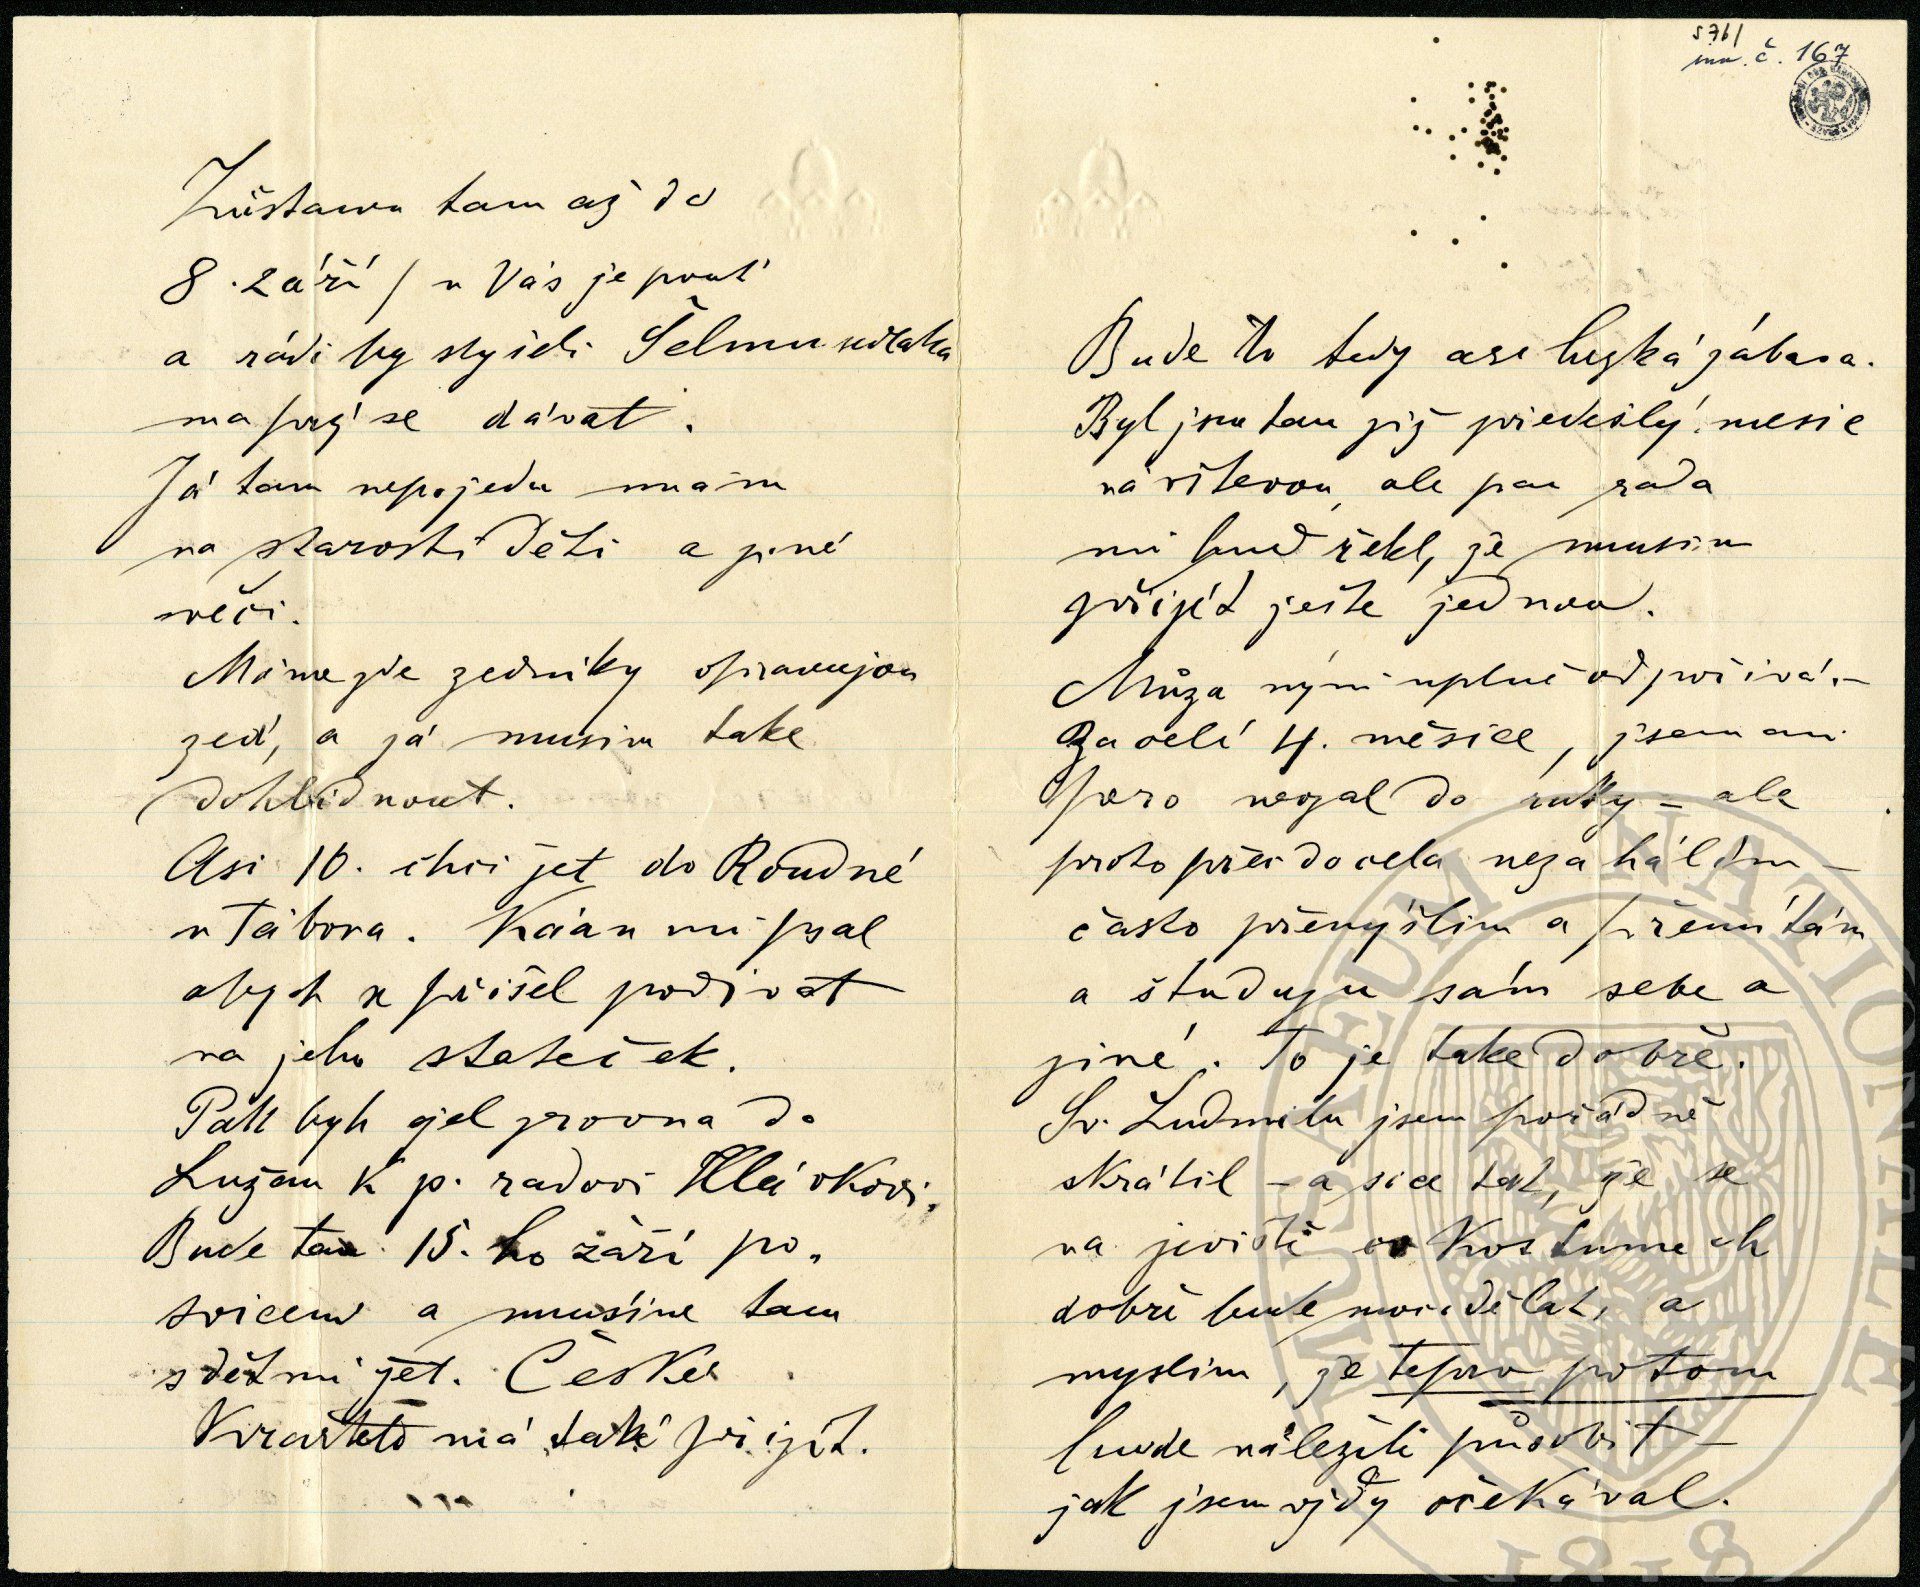 Zůstanou tam až do
8. září / u Vás je pouť
a rádi by slyšeli Šelmu sedláka
má prý se dávat.
Já tam nepojedu mám
na starosti děti a jiné
věci.
Máme zde zedníky opravujou
zeď, a já musím take
dohlídnout.
Asi 10. chci jet do Roudné
u Tábora. Káan mi psal
abych se přišel podivat
na jeho stateček.
Pak bych jel zrovna do
Lužan k p. radovi Hlávkovi.
Bude tam 15. ho září po-
svicení a musíme tam
s dětmi jet. České
Kvarteto má také přijít.
5761
inv. č. 167
Bude to tedy asi hezká zábava.
Byl jsem tam již předešlý mesic
návštevou, ale pan rada
mi hned řekl, že musim
přijít ješte jednou.
Můza nýní uplně odpočívá.-
Za celé 4. měsíce, jsem ani
pero nevzal do ruky - ale
proto přeci docela nezahálím -
často přemýšlim a přemítám
a študuju sám sebe a
jiné. To je take dobře.
Sv. Ludmilu jsem pořádně
skrátil - a sice tak, že se
na jevišti v kostumech
dobře bude moci dělat, a
myslim, že teprv potom
bude náležitě působit -
jak jsem vždy očekával.
MUSAEUM NATIONALE
1818